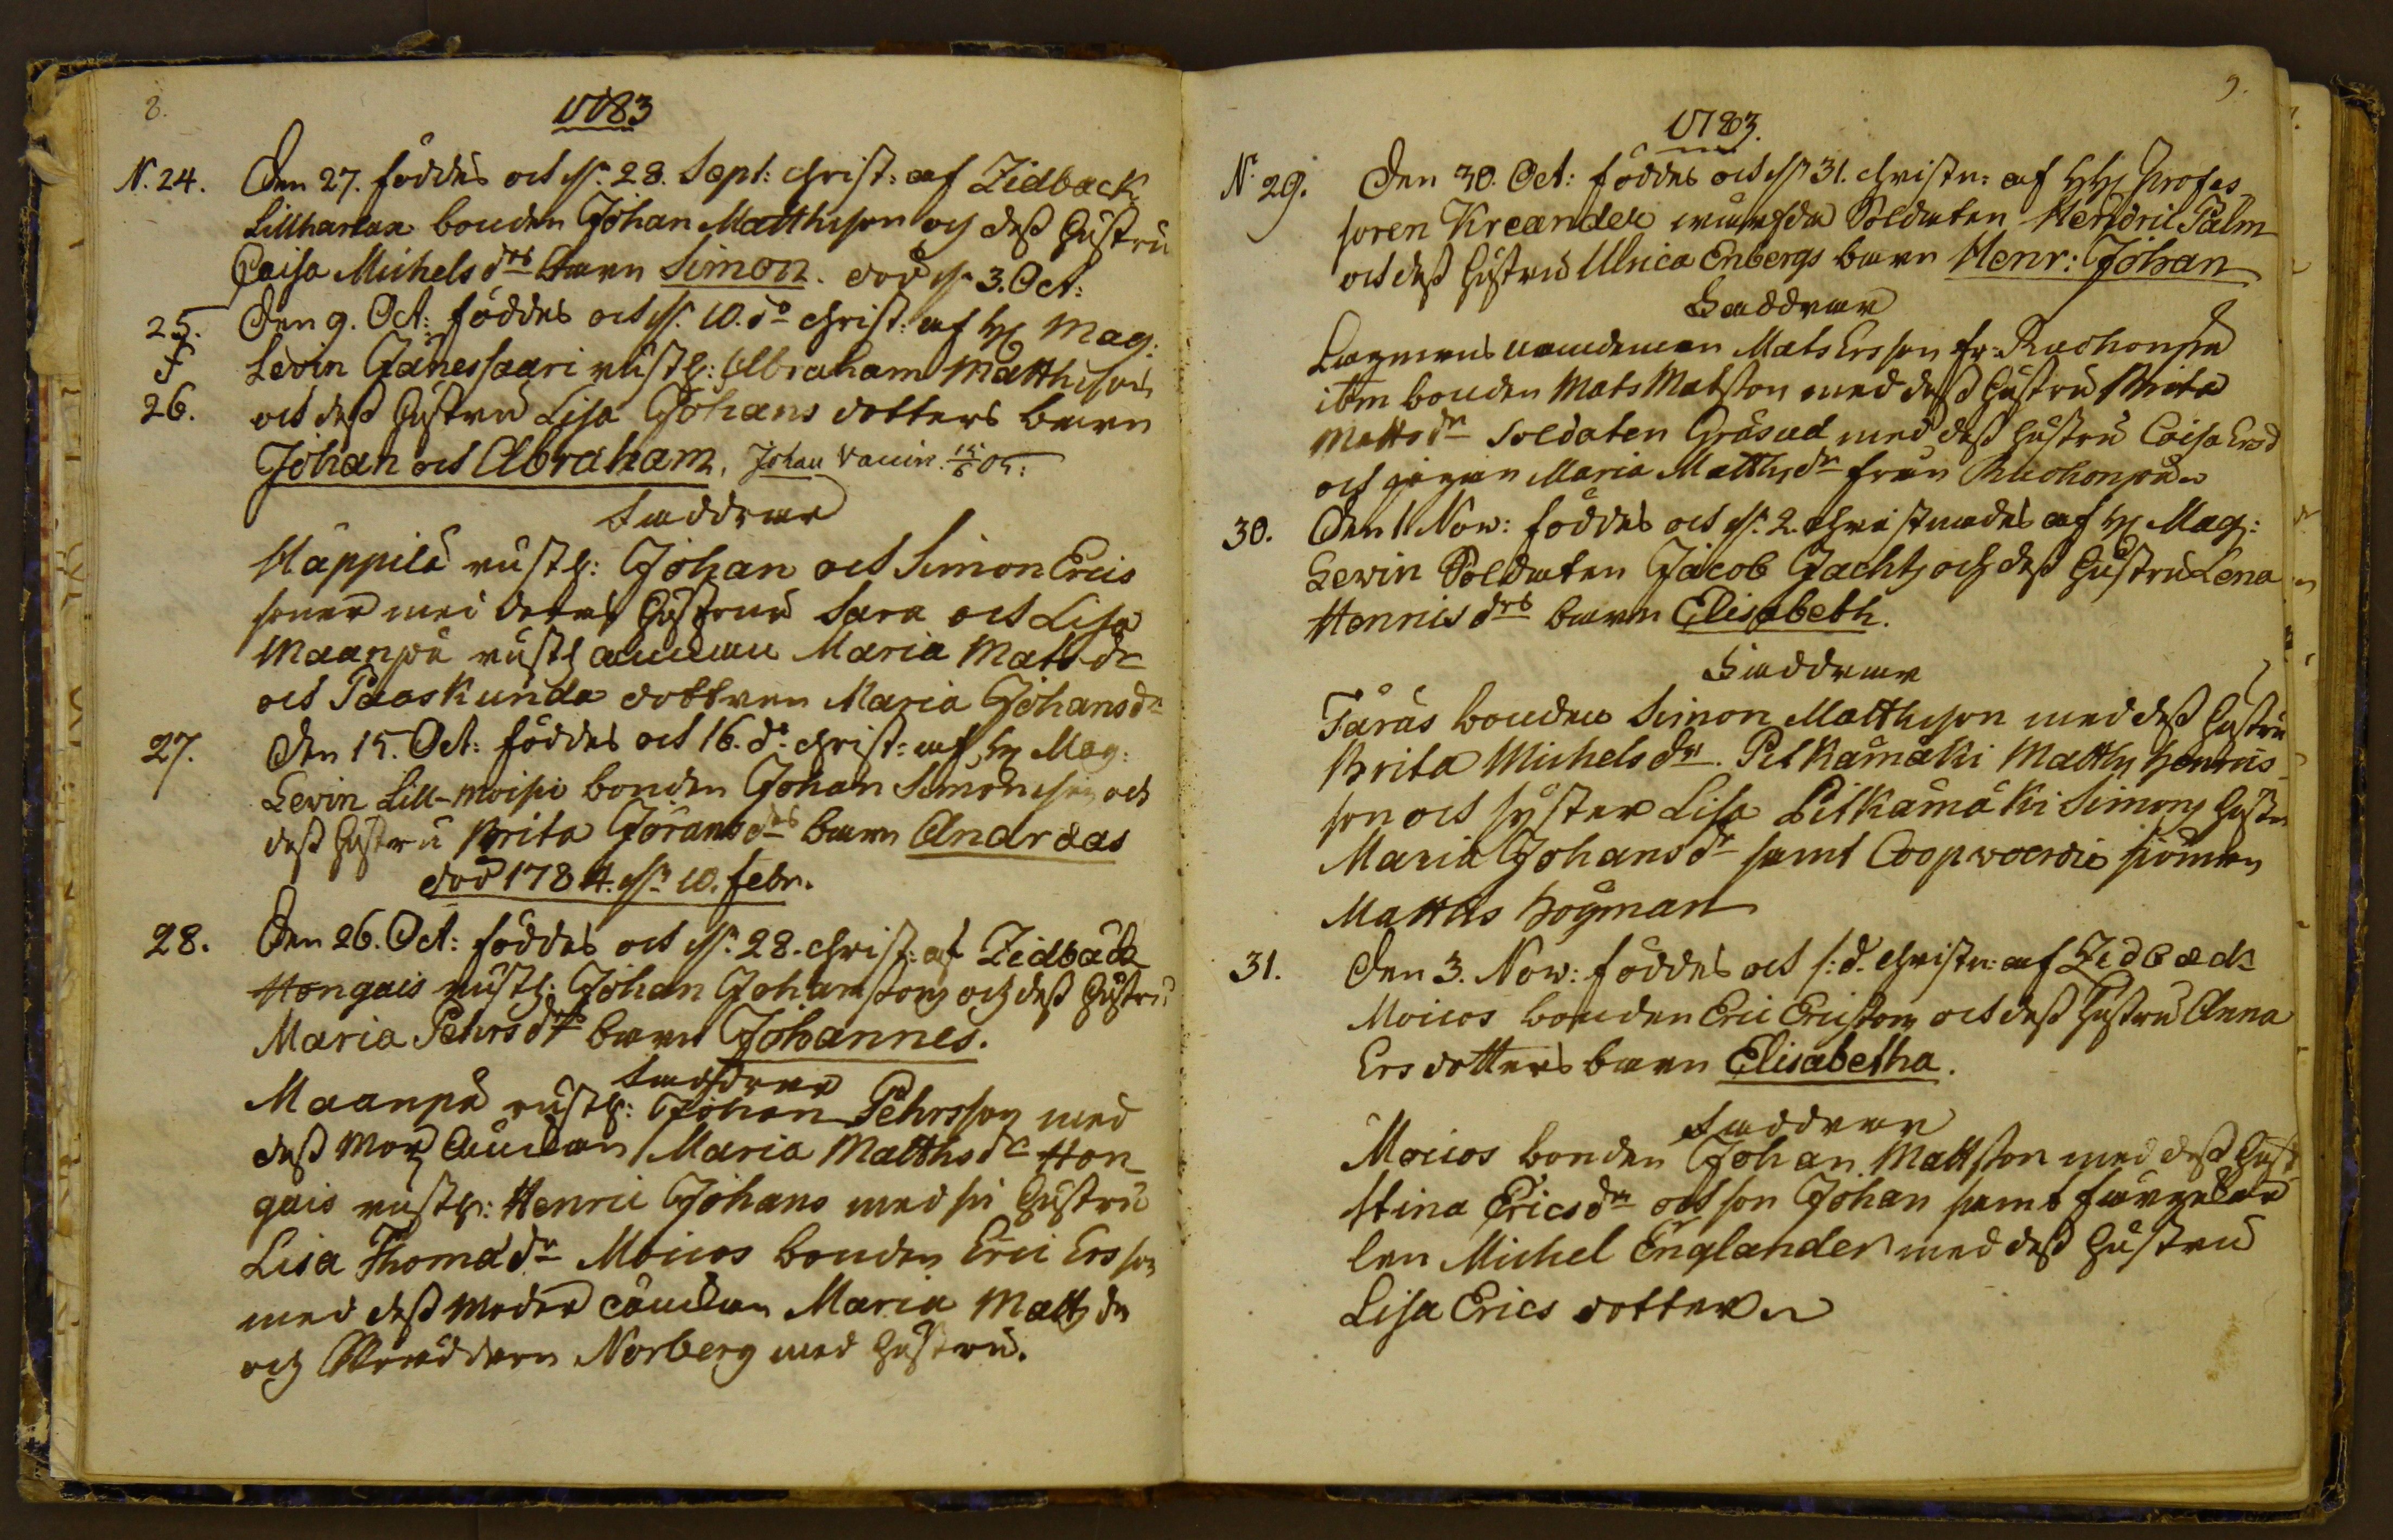 8.
1783
N. 24. Den 27. föddes och d. 28. Sept: Christ: af Zidbäck
Lillharlax bonden Johan Matthsson och dess hustru
Caisa Michels drs barn Simon. död d. 3. Oct:
25. Den 9. Oct: föddes och d. 10. do Christ: af H. Mag:
& Levin Jänessaari rusth: Abraham Matthssons
26. och dess hustru Lisa Johans dotters barn
Johan och Abraham. Johan Vaccin. 15/6 05:
Faddrar
Käppilä rusth: Johan och Simon Erics
söner med deras hustrur Sara och Lisa
Maanpä rusth enckan Maria Mats dr
och Paaskunda dottren Maria Johans dr
27. Den 15. Oct: föddes och 16. do. Christ: af H. Mag:
Levin Lill-moisi bonden Johan Simonsson och
dess hustru Brita Jörans drs barn Andreas
död 1784. d. 10. febr.
28. Den 26. Oct: föddes och d. 28. Christ: af Zidbäck
Hongais rusth: Johan Johansson och dess hustru
Maria Pehrs drs barn Johannes.
Faddrar
Maanpä rusth: Johan Pehrsson med
dess mor Enckan Maria Matths dr Hon-
gais rusth: Henric Johans med sin hustru
Lisa Thoma dr Moicos bonden Eric Ersson
med dess moder enckan Maria Matts dr
och Norberg med hustru.
9.
1783.
No 29. Den 30. Oct: föddes och d. 31. Christn: af HH Profes-
soren Kreander Soldaten Hendric Palm
och dess hustru Ulrica Enbergs barn Henr: Johan
Faddrar
Lagmans nämdeman Mats Ersson fr: Ruohonpä
itm bonden Mats Matsson med dess hustru Brita
Matts dr Soldaten Gråsud med dess hustru Caisa Ersd
och pigan Maria Matths dr från Ruohonpä
30. Den 1 Nov: föddes och d. 2. Christnades af H. Mag:
Levin Soldaten Jacob Jacht och dess hustru Lena
Henrics drs barn Elisabeth.
Faddrar
Taras bonden Simon Matthsson med dess hustru
Brita Michels dr. Pitkämäki Matths Henrics-
son och syster Lisa Pitkämäki Simons hustru
Maria Johans dr samt Coopvaerdie sjöman
Matths Högman
31. Den 3. Nov: föddes och s: d. Christn: af Zidbäck
Moicos bonden Eric Ericsson och dess hustru Anna
Ers dotters barn Elisabetha.
Faddrar
Moicos bonden Johan Mattsson med dess hust
Stina Erics dr och son Johan samt
len Michel Englander med dess hustru
Lisa Erics dotter